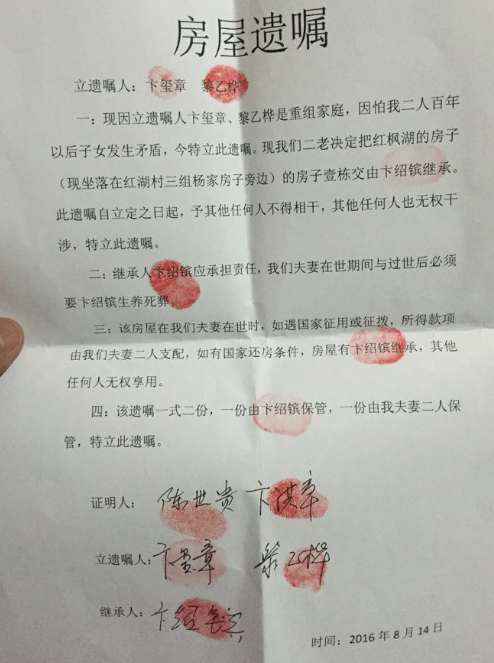 房屋遗嘱
立遗嘱人：卞玺章 黎乙桦
一：现因立遗嘱人卞玺章、黎乙桦是重组家庭，因怕我二人百年
以后子女发生矛盾，今特立此遗嘱。现我们二老决定把红枫湖的房子
（现坐落在红湖村三组杨家房子旁边）的房子壹栋交由卞绍镔继承。
此遗嘱自立定之日起，予其他任何人不得相干，其他任何人也无权干
涉，特立此遗嘱。
二：继承人卞绍镔应承担责任，我们夫妻在世期间与过世后必须
要卞绍镔生养死葬。
三：该房屋在我们夫妻在世时，如遇国家征用或征拨，所得款项
由我们夫妻二人支配，如有国家还房条件，房屋有卞绍镔继承，其他
任何人无权享用。
四：该遗嘱一式二份，一份由卞绍镔保管，一份由我夫妻二人保
管，特立此遗嘱。
证明人：陈世贵 卞淇章
立遗嘱人：卞玺章 黎乙桦
继承人：卞绍镔
时间：2016 年 8 月 14 日